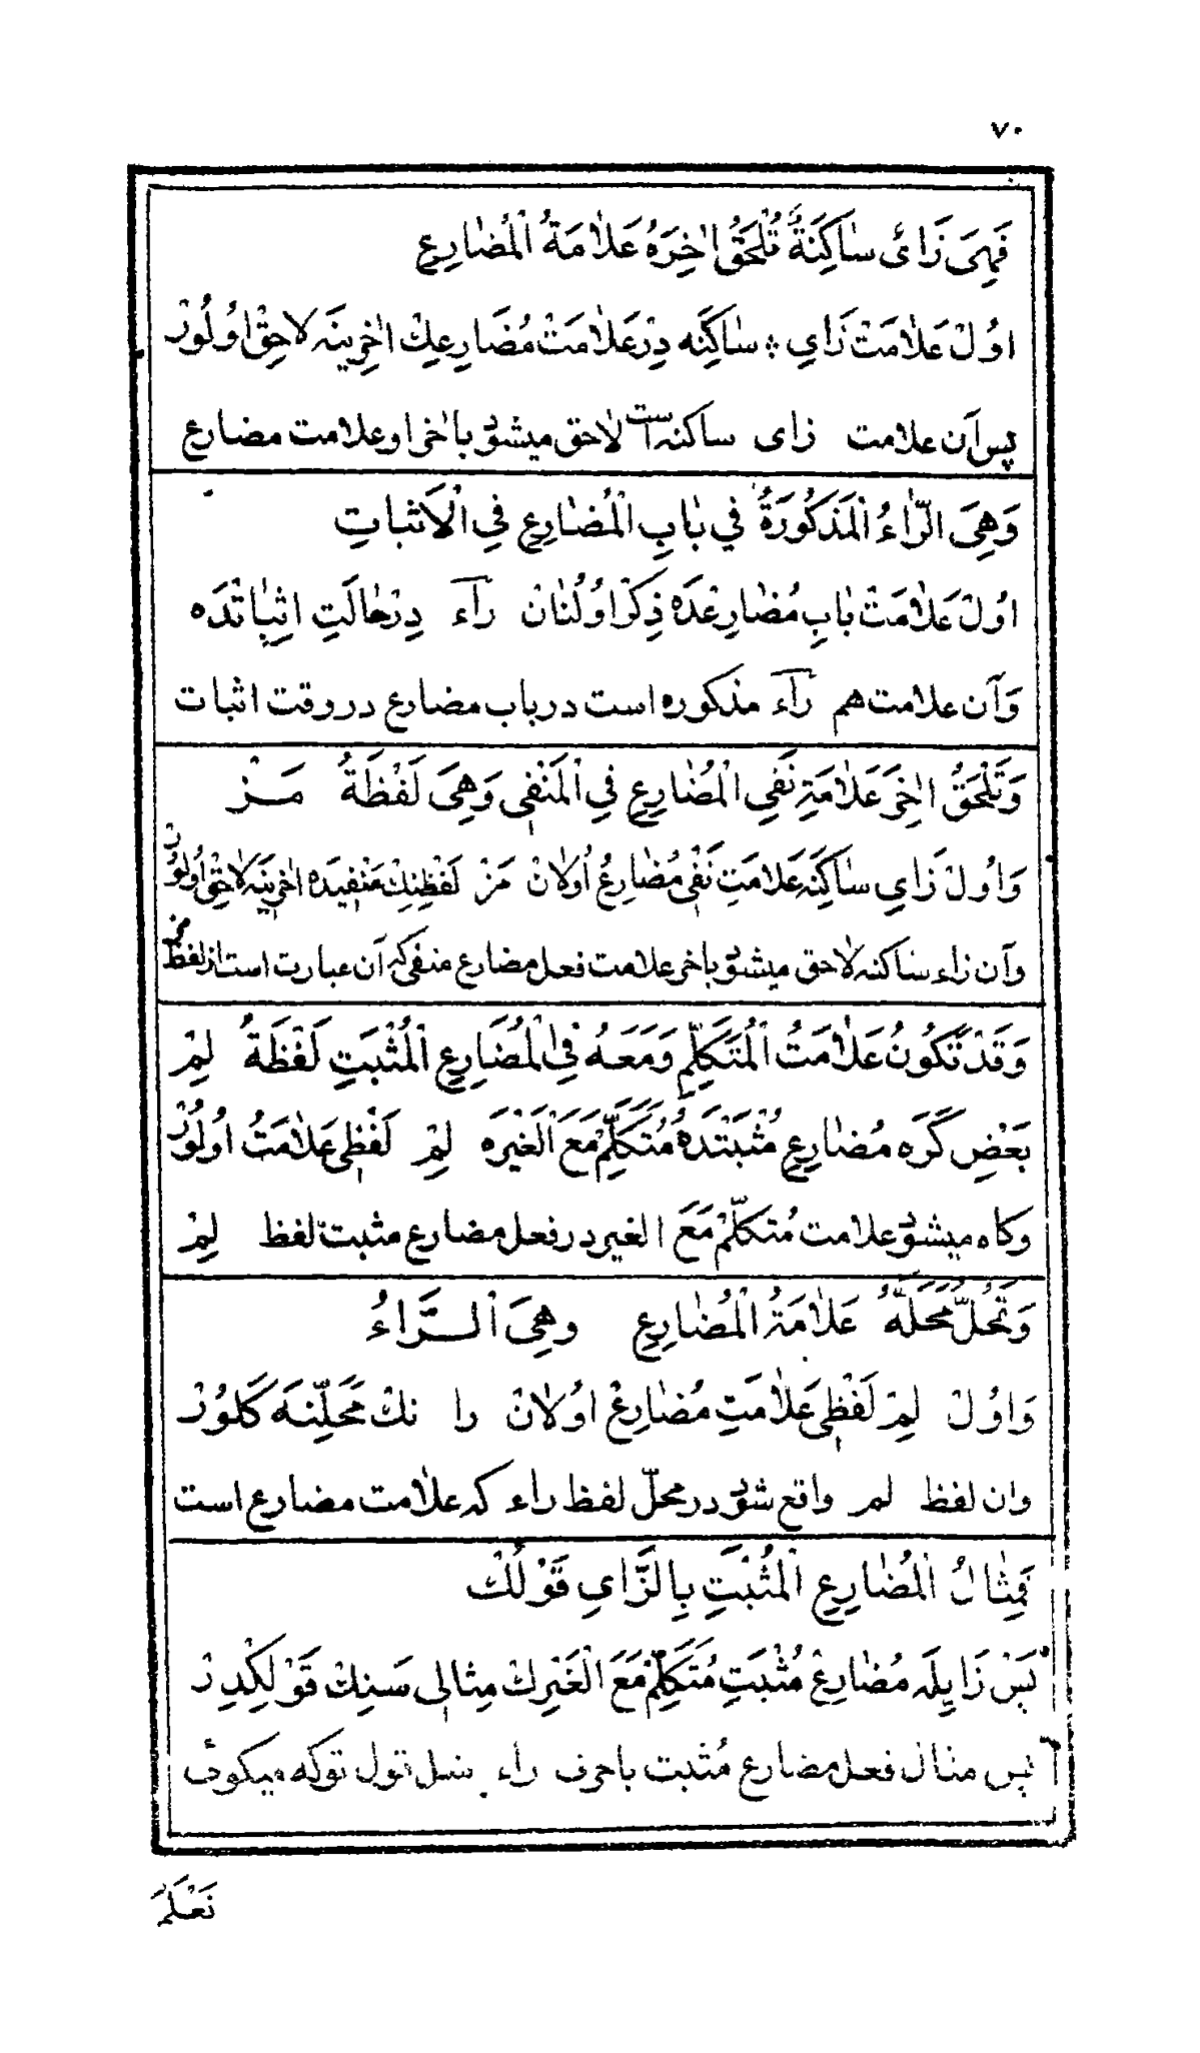 ٧٠
فَهِيَ زَائ سٰاكِنَةٌ تُلْحَقُ اٰخِرَهُ عَلاٰمَةُ الْمُضٰارِعِ
اوُلْ عَلاٰمَتْ زَايِ سٰاكِنَه دِرْ عَلاٰمَتْ مُضَارِعِكْ اٰخِرِينَه لاحِقْ اوُلُورْ
پس آن علامت زاى ساكنه است لاٰحق ميشود باٰخر او علامت مضارع
وَهِيَ الرّٰاءُ الْمَذكُورَةُ في بٰابِ الْمُضٰارِعِ فِي الْاَثبٰاتِ
اوُلْ عَلاٰمَتْ بٰابِ مُضٰارِعْدَه ذِكرْ اوُلُنٰانْ رآء دِرْ حٰالَتِ اثِبٰاتْدَه
وَآن علامت هم رآء مذكوره است در باب مضارع در وقت اثبات
وَتَلْحَقُ اٰخِرَ عَلاٰمَةِ نَفىِ الْمُضٰارِعِ فيِ الْمَنْفىِ وَهِيَ لَفْظَةُ مَــزْ
وَاوُلْ زَايِ سٰاكِنَه عَلاٰمَتِ نَفْىِ مُضٰارِعْ اُولاٰنْ مَزْ لَفْظِنِكْ مَنْفِيدَه اٰخِرِينَه لاٰحِقْ اُولوُرْ
وآن زاء ساكنه لاٰحق ميشود باٰخر علامت فعل مضارع منفى كه آن عبارت است از لفظ مز
وَقَدْ تَكوُنُ عَلاٰمَتُ الْمُتَكَلِّمِ وَمَعَهُ فيِ الْمُضَارِعِ الْمُثْبَتِ لَفْظَةُ لِمْ
بَعْضِ كَرَه مُضٰارِعِ مُثْبَتْدَه مُتَكَلِّمْ مَعَ الْغَيْرَه لِمْ لَفْظِى عَلاٰمَتْ اوُلوُرْ
وكاه ميشود علامت مُتكلّم مَعَ الغير در فعل مضارع مثبت لفظ لِمْ
وَتَحُلُّ مَحَلَّهُ عَلاٰمَةُ الْمُضٰارِعِ وهِيَ الــرَّاءُ
وَاوُلْ لِمْ لَفْظِى عَلاٰمَتِ مُضٰارِعْ اوُلاٰنْ را نكْ مَحَلِّنَه كَلوُرْ
وان لفظ لم واقع شود در محلّ لفظ راء كه علاٰمت مضارع است
فَمِثٰالُ الْمُضٰارِعِ الْمُثْبَتِ بِالزَّايِ قَوْلُكْ
پَسْ زَايِلَه مُضٰارِعْ مُثْبَتِ مُتَكَلِّمْ مَعَ الْغَيْرِكْ مِثالِى سَنِكْ قَوْلكِدِرْ
پس مثال فعل مضارع مُثبت باحرف راء قول توكه ميكوئى
نَعْلَمُ